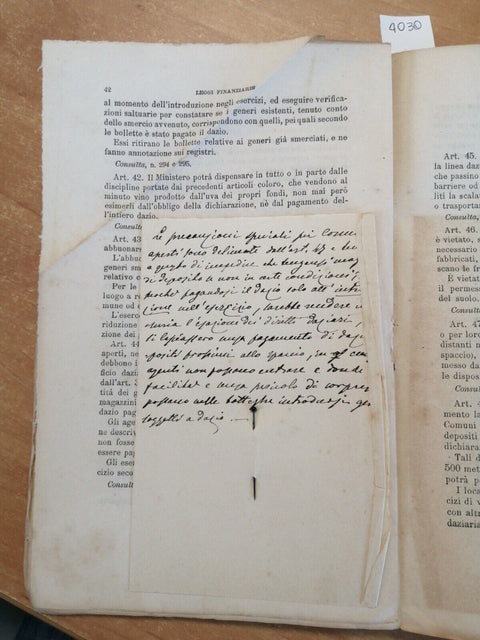 4030
42 LEGGI FINANZIARIE
al momento dell'introduzione negli esercizi, ed eseguire verifica-
zioni saltuarie per constatare se i generi esistenti, tenuto conto
dello smercio avvenuto, corrispondono con quelli, pei quali secondo
le bollette è stato pagato il dazio.
Essi ritirano le bollette relative ai generi già smerciati, e ne
fanno annotazione sui registri.
Consulta, n. 294 e 295.
Art. 42. Il Ministero potrà dispensare in tutto o in parte dalle
discipline portate dai precedenti articoli coloro, che vendono al
minuto vino prodotto dall'uva dei propri fondi, non mai però
esimerli dall'obbligo della dichiarazione, nè dal pagamento del-
l'intiero dazio.
Consulta,
Art. 43
abbuonare
L'abbu
generi sm
relativo a
Per le
luogo a r
mune od e
L'eserc
riduzione
zione dei
Art. 44
aperti, ne
ficio dazia
dall'art. 3
tità dei ge
magazzini
dazio pag
Gli age
ne descriv
non fosse
essere pa
Gli eser
cizio seco
Consulta
Le precauzioni speciali pei Comuni
aperti sono delineate dall'art. 43 e
di deposito
pagandosi il dazio solo all'
zione nell'esercizio, sarebbe
l'esazione dei diritti daziari,
si lasciassero senza pagamento di dazio
positi prossimi allo spaccio, in
agenti non possono entrare e donde
facilità e senza pericolo di
possono nelle botteghe introdursi
soggetti a dazio
Art. 45.
la linea daz
che passino
barriere od
liti la scala
o trasportar
Consulta,
Art. 46.
è vietato, s
vietato, ed i
fabbricati,
scano le fr
È vietat
il permess
del suolo.
Consulta,
Art. 47
o per lor
distanti n
spaccio,
messo da
distanti d
Consulta
Art. 4
mento la
Comuni
depositi
dichiara
Tal d
500 met
potrà p
I loca
cizi di v
con altr
daziaria